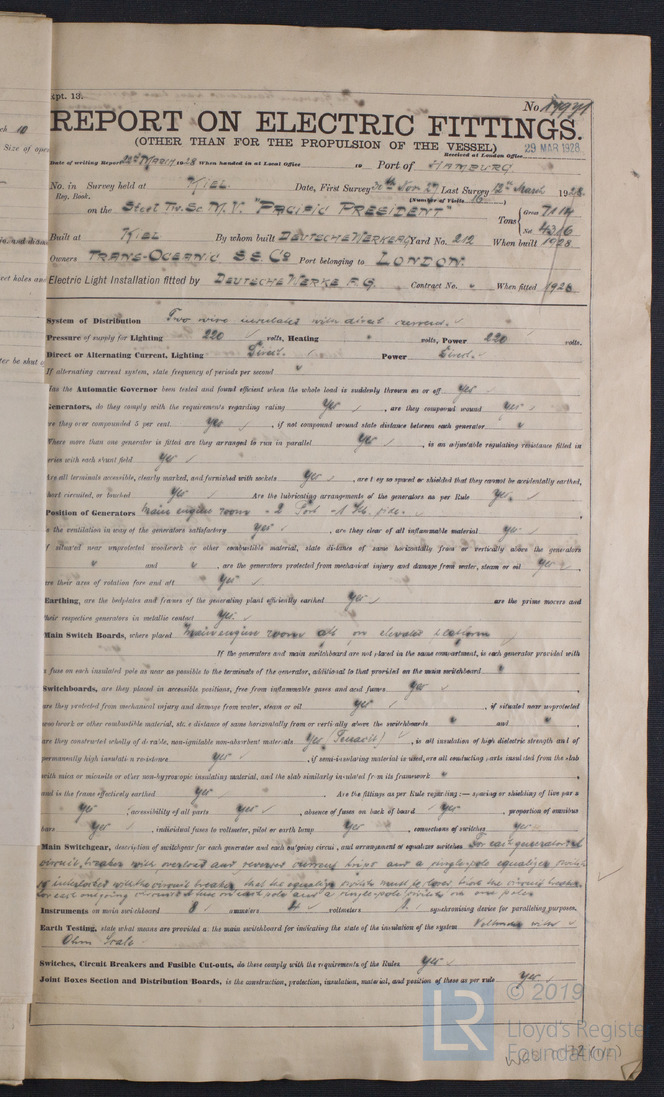 kpt. 13.
No 17971
REPORT ON ELECTRIC FITTINGS.
(OTHER THAN FOR THE PROPULSION OF THE VESSEL)
29 MAR 1928
Date of writing Report 22nd MARCH 1928 When handed in at Local Office 19 Port of HAMBURG. Received at London Office
No. in Survey held at KIEL. Date, First Survey Last Survey 12th March 1928
Reg. Book. (Number of Visits 16)
on the Steel Tw. Sc. M.V. "PACIFIC PRESIDENT" Tons { Gross 7114
Net 4316
Built at KIEL By whom built DEUTSCHE WERKE Yard No. 212 When built 1928
Owners TRANS-OCEANIC S.S. Co Port belonging to LONDON.
Electric Light Installation fitted by DEUTSCHE WERKE Contract No. " When fitted 1928
System of Distribution Two wire insulated with direct current.
Pressure of supply for Lighting 220 volts, Heating " volts, Power 220 volts.
Direct or Alternating Current, Lighting Direct. Power Direct.
If alternating current system, state frequency of periods per second "
Has the Automatic Governor been tested and found efficient when the whole load is suddenly thrown on or off yes
Generators, do they comply with the requirements regarding rating yes, are they compound wound yes
are they over compounded 5 per cent. yes, if not compound wound state distance between each generator "
Where more than one generator is fitted are they arranged to run in parallel yes, is an adjustable regulating resistance fitted in
series with each shunt field yes
Are all terminals accessible, clearly marked, and furnished with sockets yes, are they so spaced or shielded that they cannot be accidentally earthed,
short circuited, or touched yes Are the lubricating arrangements of the generators as per Rule yes.
Position of Generators Main engine room - 2 Port - 1 Stb. side.
is the ventilation in way of the generators satisfactory yes, are they clear of all inflammable material yes.
if situated near unprotected woodwork or other combustible material, state distance of same horizontally from or vertically above the generators
" and ", are the generators protected from mechanical injury and damage from water, steam or oil yes
are their axes of rotation fore and aft yes
Earthing, are the bedplates and frames of the generating plant efficiently earthed yes are the prime movers and
their respective generators in metallic contact yes.
Main Switch Boards, where placed Main engine room aft on elevated platform
If the generators and main switchboard are not placed in the same compartment, is each generator provided with
a fuse on each insulated pole as near as possible to the terminals of the generator, additional to that provided on the main switchboard "
Switchboards, are they placed in accessible positions, free from inflammable gases and acid fumes yes
are they protected from mechanical injury and damage from water, steam or oil yes, if situated near unprotected
woodwork or other combustible material, state distance of same horizontally from or vertically above the switchboards " and "
are they constructed wholly of durable, non-ignitable non-absorbent materials yes (Tenacit), is all insulation of high dielectric strength and of
permanently high insulation resistance yes, if semi-insulating material is used, are all conducting parts insulated from the slab
with mica or micanite or other non-hygroscopic insulating material, and the slab similarly insulated from its framework "
and is the frame effectively earthed yes. Are the fittings as per Rule regarding:— spacing or shielding of live parts
yes, accessibility of all parts yes, absence of fuses on back of board yes, proportion of omnibus
bars yes, individual fuses to voltmeter, pilot or earth lamp yes, connections of switches yes
Main Switchgear, description of switchgear for each generator and each outgoing circuit, and arrangement of equalizer switches For each generator a
circuit breaker with overload and reversed current trips and a single pole equalizer switch
interlocked with the circuit breaker that the equalizer switch must be closed before the circuit breaker.
For each outgoing circuit a fuse on each pole and a single pole switch on one pole.
Instruments on main switchboard 8 ammeters 4 voltmeters synchronising device for paralleling purposes.
Earth Testing, state what means are provided at the main switchboard for indicating the state of the insulation of the system Voltmeter with
Ohm Scale.
Switches, Circuit Breakers and Fusible Cut-outs, do these comply with the requirements of the Rules yes
Joint Boxes Section and Distribution Boards, is the construction, protection, insulation, material, and position of these as per rule yes
LR
© 2019
Lloyd's Register
Foundation